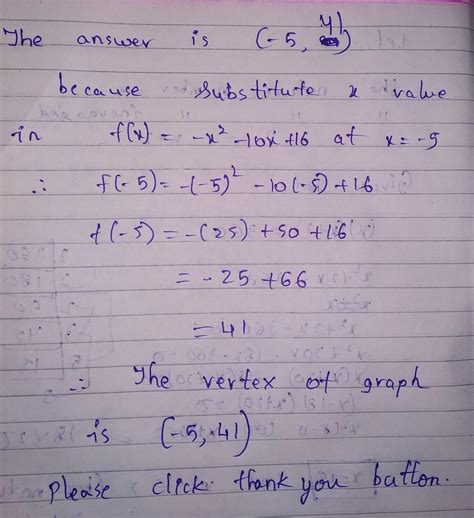 The answer is (-5, 41)
because substitute x value
in f(x) = -x² -10x +16 at x = -5
∴ f(-5) = -(-5)² -10(-5) +16
f(-5) = -(25) +50 +16
= -25 +66
= 41
∴ The vertex of graph
is (-5, 41)
please click thank you button.